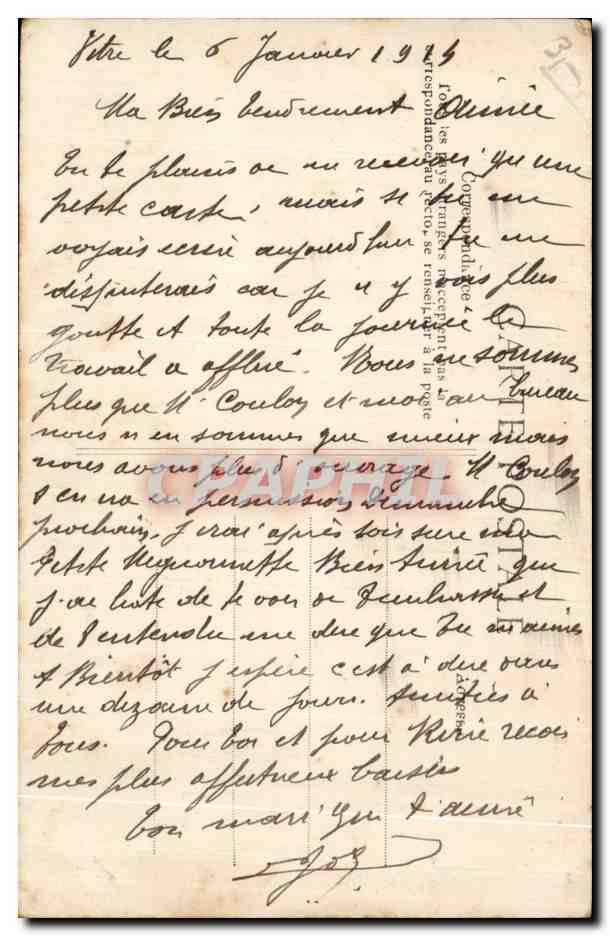 Vitre le 6 Janvier 1915
Ma Bien tendrement Aimée
Tu te plains de ne recevoir qu'une
petite carte, mais si tu me
voyais ecrire aujourd'hui tu me
disputerais car je n'y vois plus
goutte et toute la journée le
travail a afflué. Nous ne sommes
plus que Mr Couloy et moi au bureau
nous n'en sommes que mieux mais
nous avons plus d'ouvrage. Mr Couloy
s'en va en permission Dimanche
prochain, j'irai après sois sure ma
Petite Mignonnette Bien Aimée que
j'ai hate de te voir de t'embrasser et
de t'entendre me dire que tu m'aimes
A Bientôt j'espère c'est à dire dans
une dizaine de jours. Amitiés à
tous. Pour toi et pour René reçois
mes plus affectueux baisers
Ton mari qui t'aime
CARTE POSTALE
Correspondance
Tous les pays étrangers n'acceptent pas la
correspondance au recto, se renseigner à la poste
Adresse
CPAPHIL